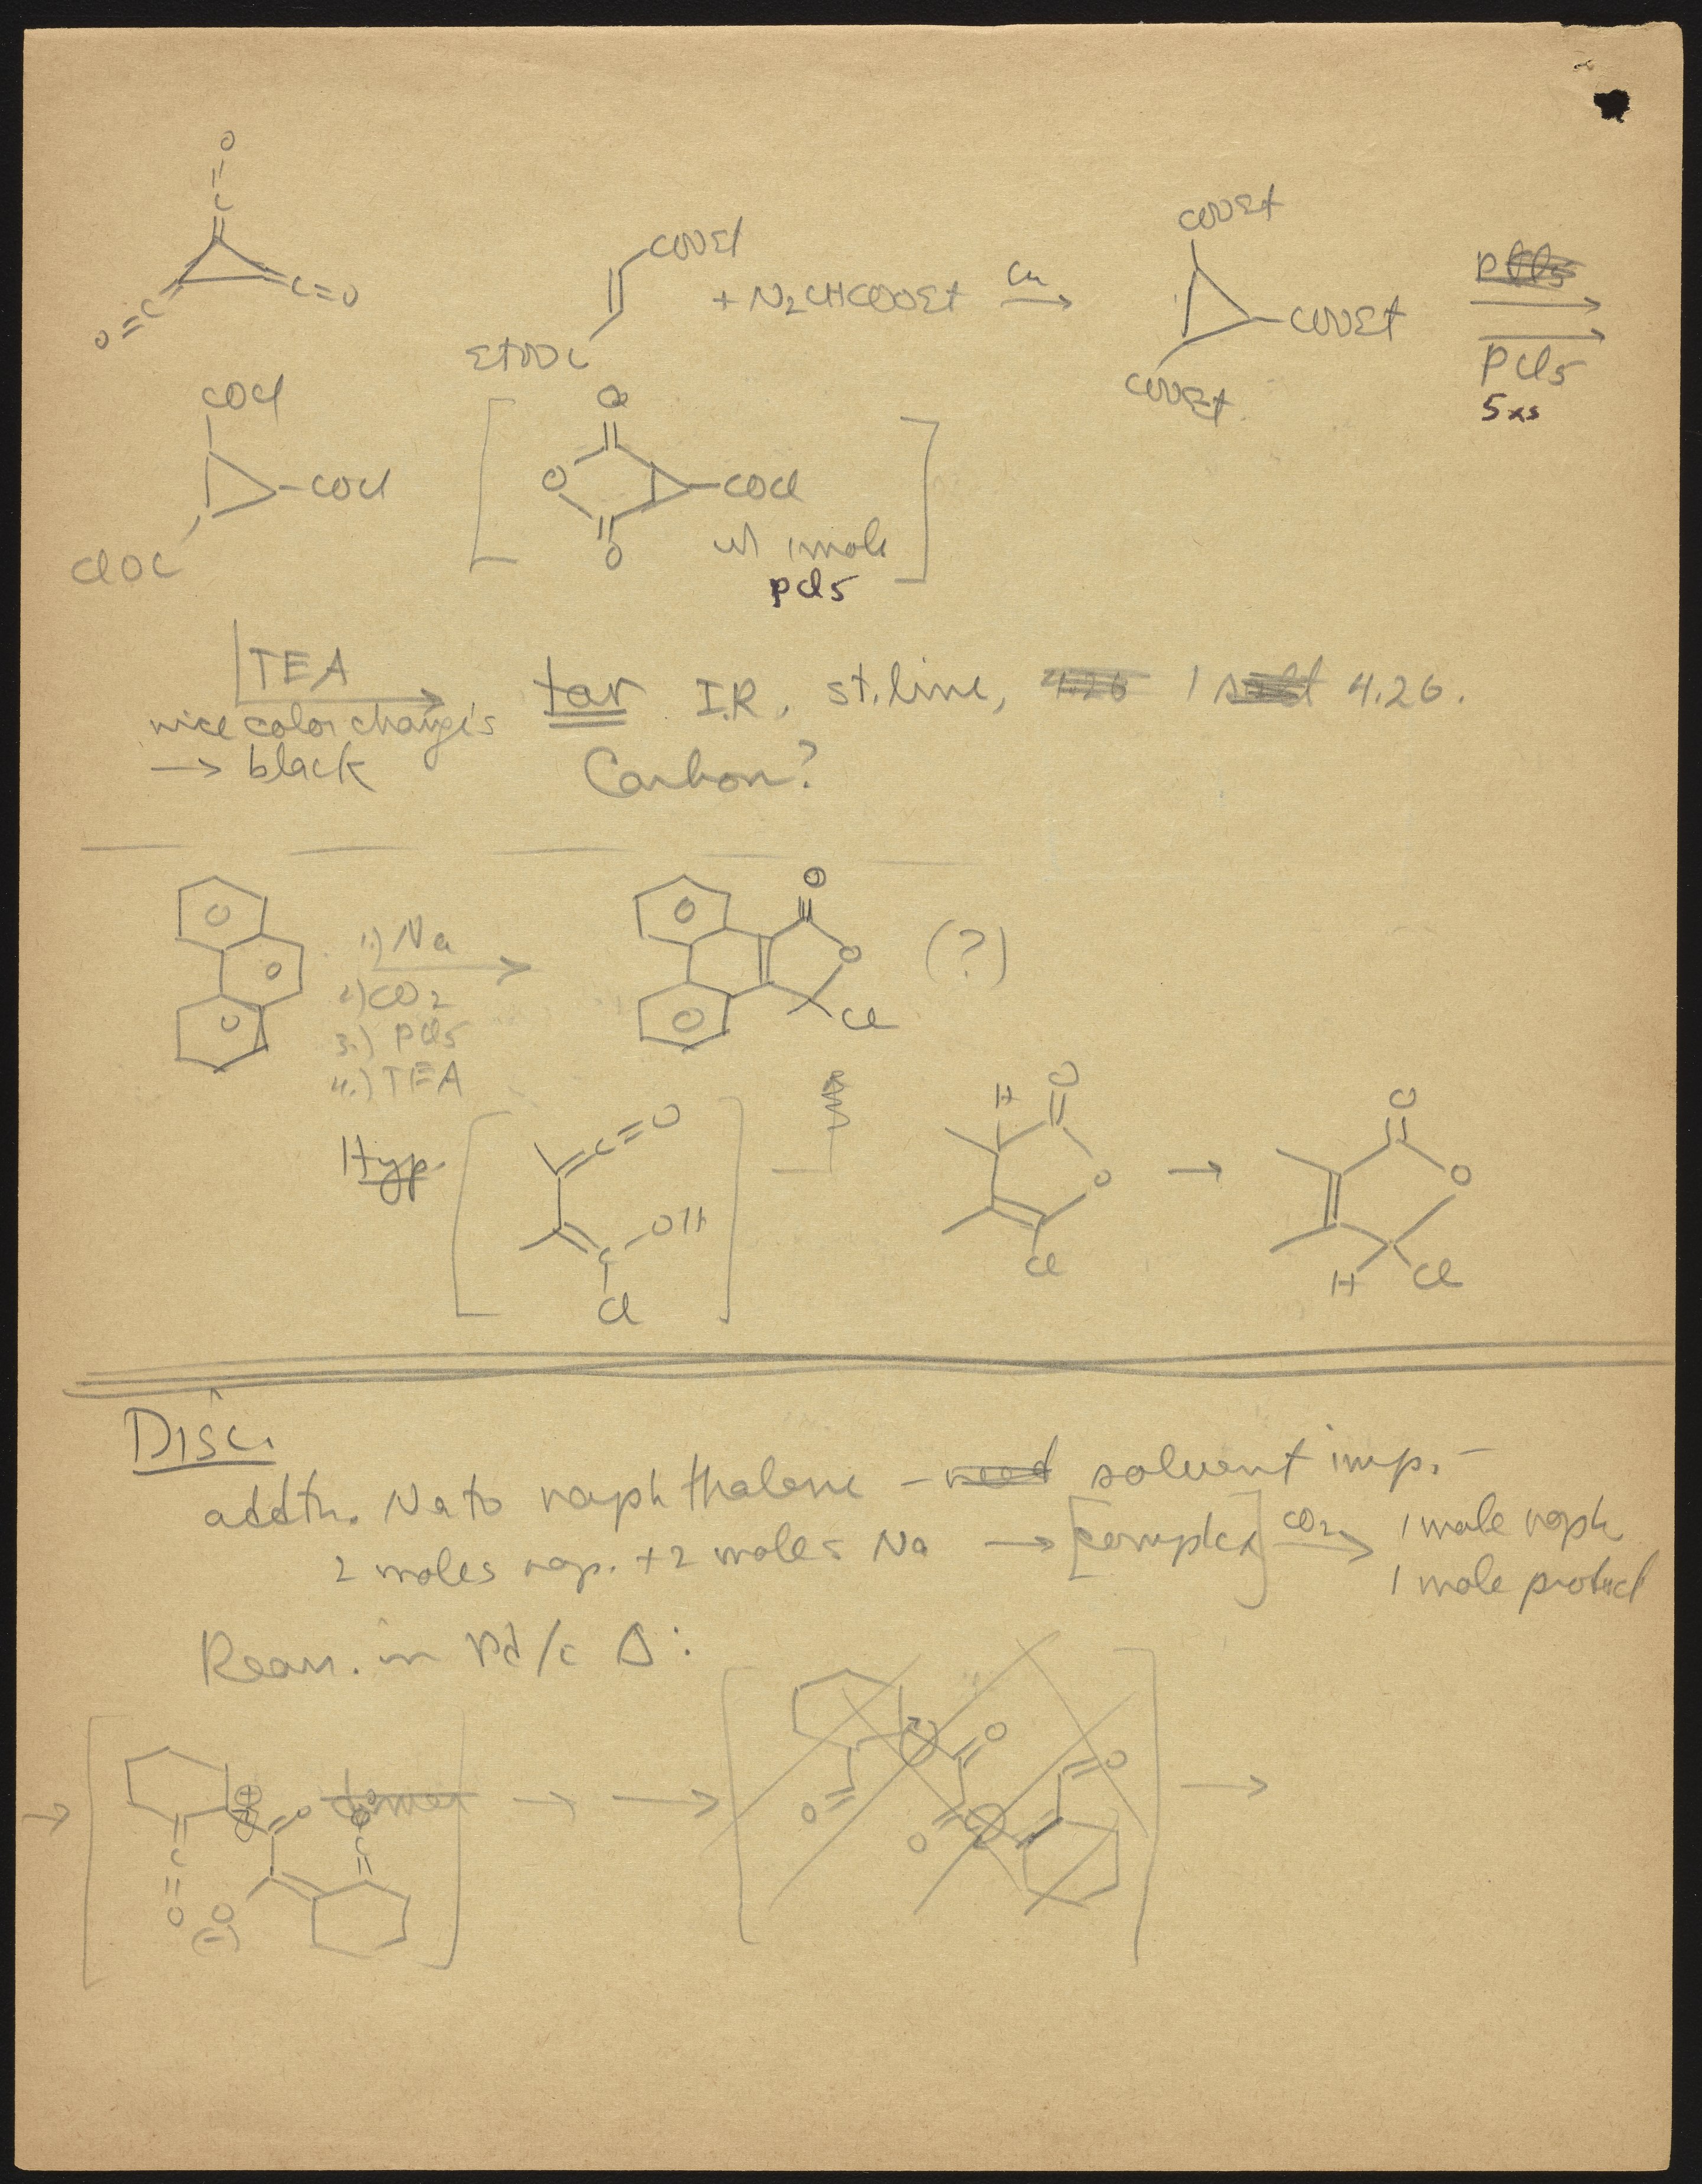 O
C
C=O
O=C
COOEt
EtOOC
+ N2CHCOOEt
Cu
COOEt
COOEt
COOEt
PCl5
PCl5
5xs
COCl
COCl
ClOC
O
O
O
COCl
w/ 1 mole
PCl5
TEA
nice color change's
→ black
tar I.R. st. line, 4.26 1 salt 4.26.
Carbon?
1.) Na
2.) CO2
3.) PCl5
4.) TEA
O
O
Cl
(?)
Hyp.
C=O
C
OH
Cl
H
O
O
Cl
O
O
H
Cl
Disc.
addtn. Na to naphthalene - need solvent imp. -
2 moles nap. + 2 moles Na → [complex] CO2 → 1 mole naph
1 mole product
Rearr. in Pd/c Δ:
→
C
O
O
O
(-)
dimer
→ →
O
O
O
O
→